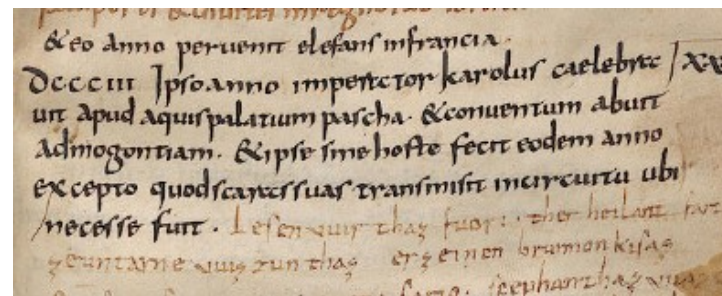 &eo anno peruenit elefans infrancia.
DCCCIII Ipso anno imperator karolus caelebra
uit apud aquispalatium pascha. &conuentum abuit
admogontiam. &ipse sine hoste fecit eodem anno
excepto quod scaras suas transmisit incircuitu ubi
necesse fuit. Lesen uuir thaz fuori ther heilant fart
zeuntarne uuizzun thaz er zeinen brunnon kisaz